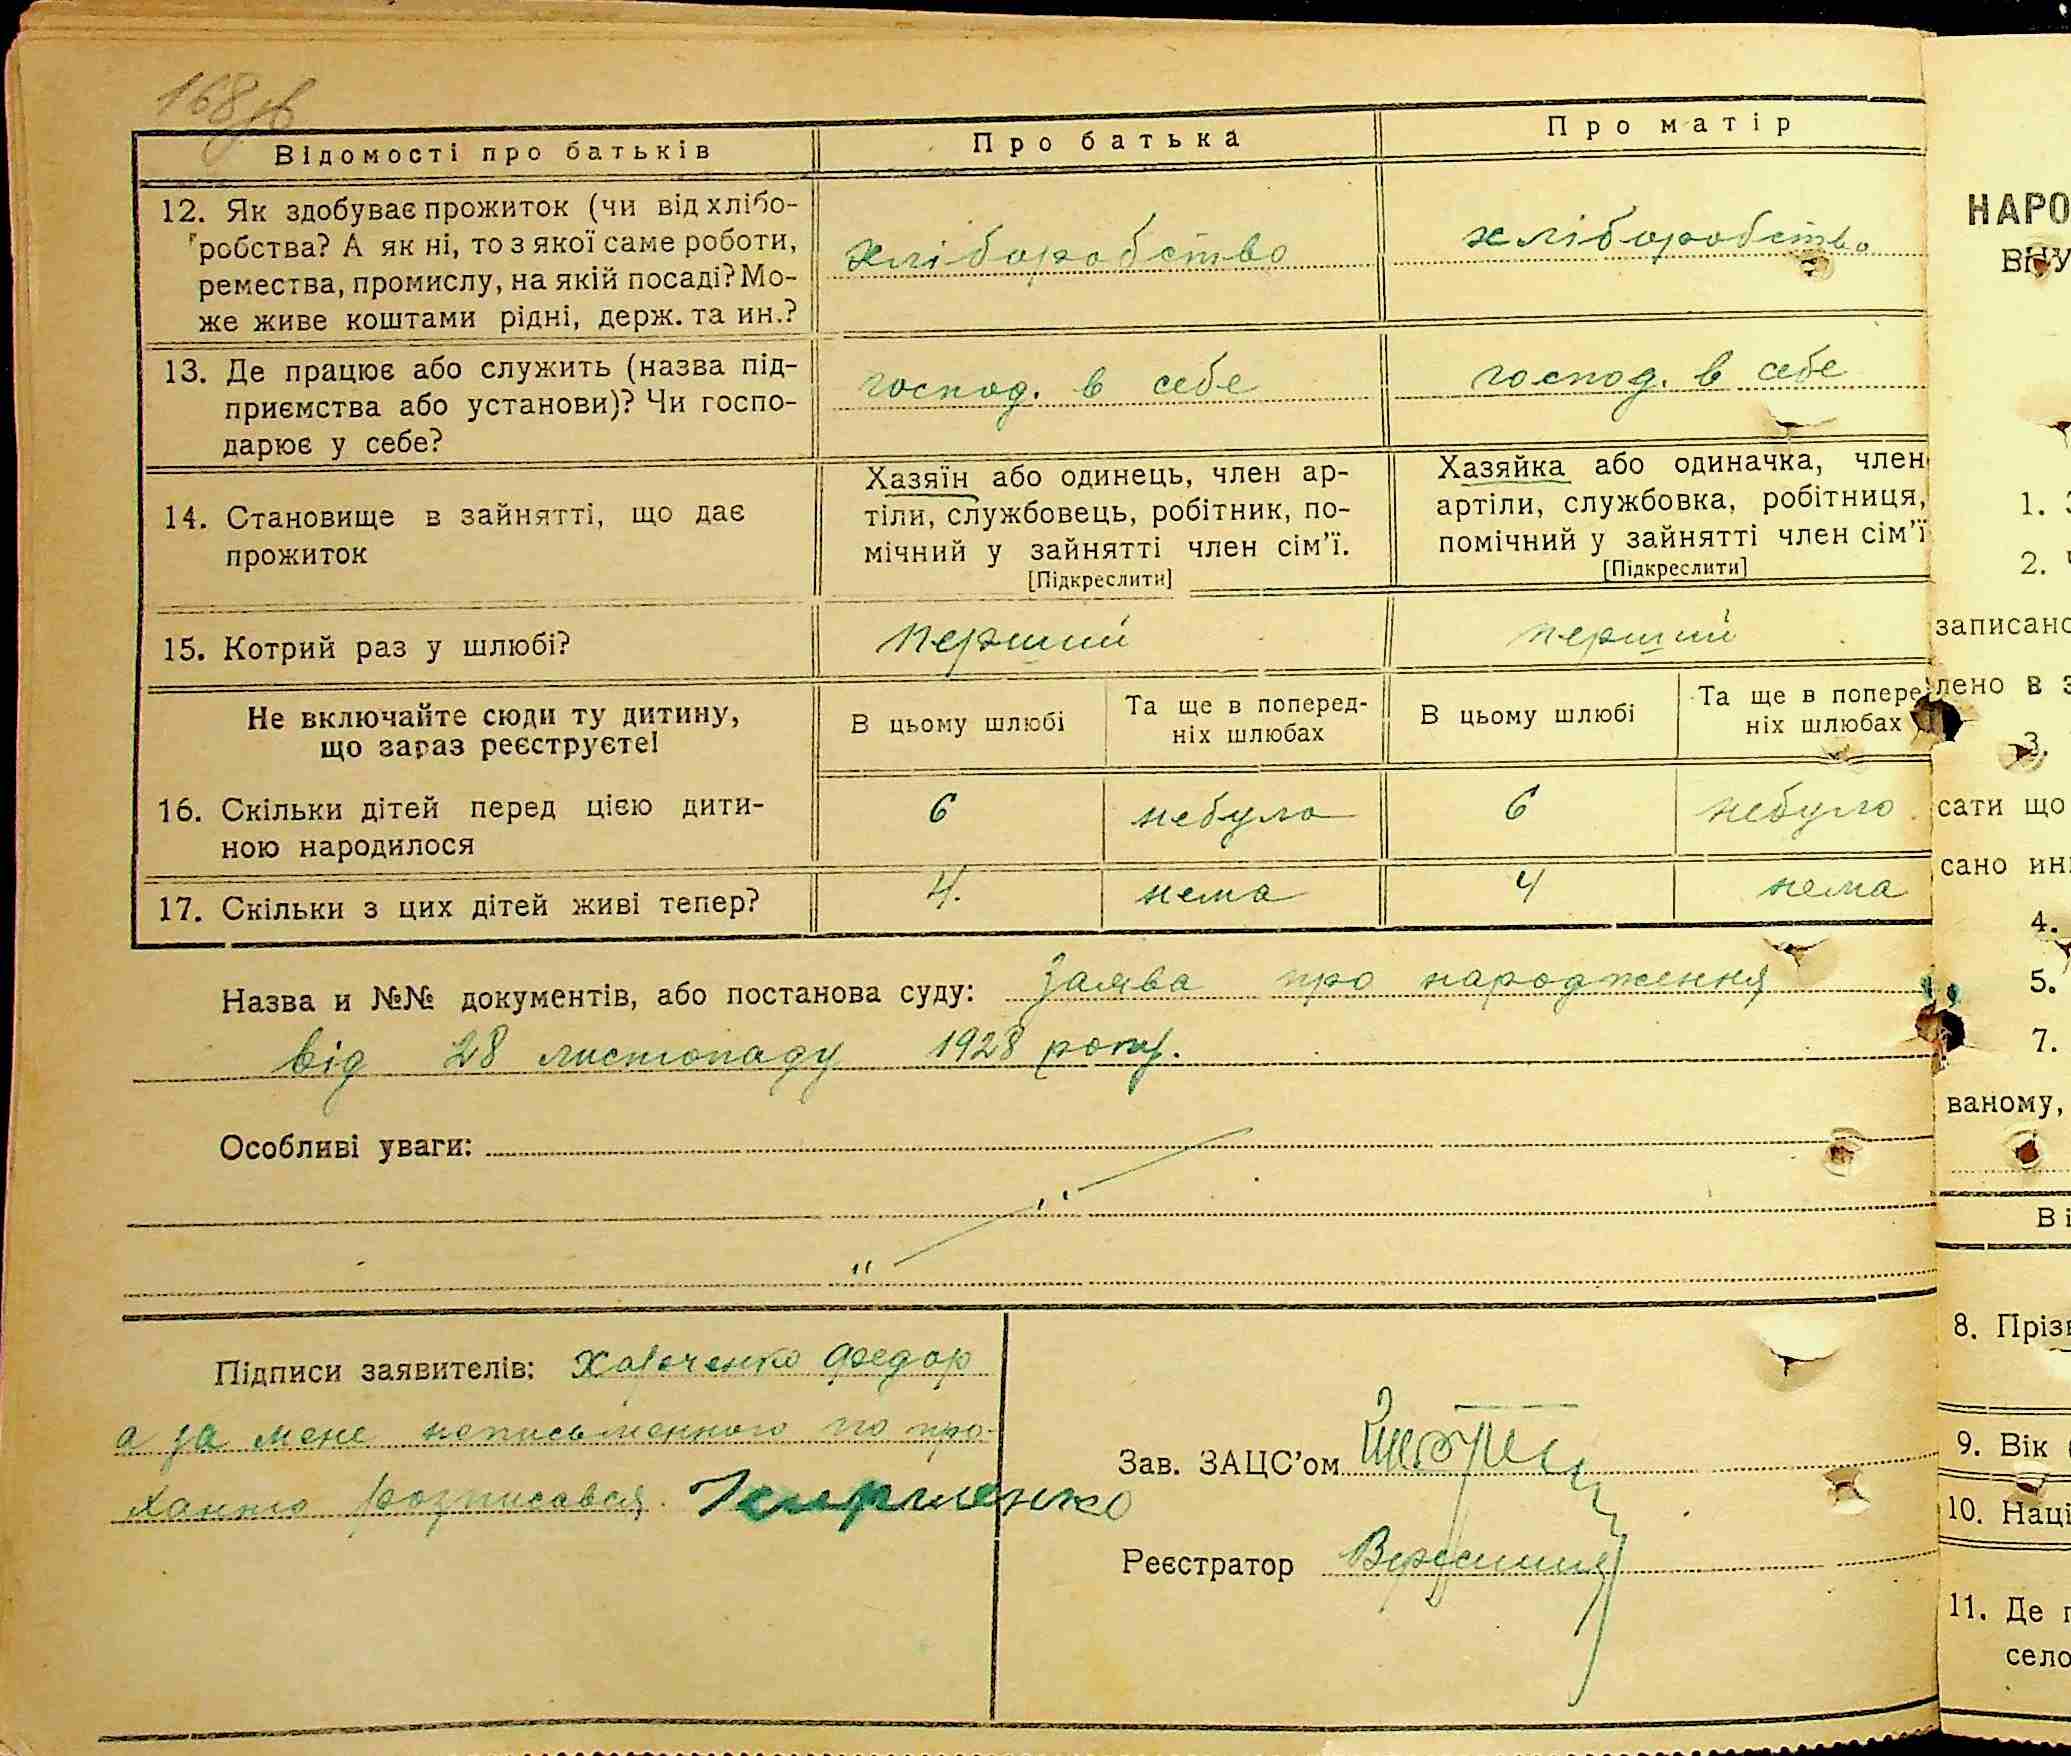 168зв
Відомості про батьків
Про батька
Про матір
12. Як здобуває прожиток (чи від хлібо-
робства? А як ні, то з якої саме роботи,
ремества, промислу, на якій посаді? Мо-
же живе коштами рідні, держ. та ин.?
хліборобство
хліборобство
13. Де працює або служить (назва під-
приємства або установи)? Чи госпо-
дарює у себе?
господ. в себе
господ. в себе
14. Становище в зайнятті, що дає
прожиток
Хазяїн або одинець, член ар-
тіли, службовець, робітник, по-
мічний у зайнятті член сім'ї.
[Підкреслити]
Хазяйка або одиначка, член
артіли, службовка, робітниця,
помічний у зайнятті член сім'ї
[Підкреслити]
15. Котрий раз у шлюбі?
перший
перший
Не включайте сюди ту дитину,
що зараз реєструєте!
В цьому шлюбі
Та ще в поперед-
ніх шлюбах
В цьому шлюбі
Та ще в попере
ніх шлюбах
16. Скільки дітей перед цією дити-
ною народилося
6
небуло
6
небуло
17. Скільки з цих дітей живі тепер?
4.
нема
4
нема
Назва и №№ документів, або постанова суду: Заява про народження
від 28 листопаду 1928 року.
Особливі уваги:
Підписи заявителів: Харченко Федор
а за мене неписьменного по про-
ханню розписався
Зав. ЗАЦС'ом
Реєстратор
НАРО
ВНУ
1. З
2. Ч
записано
лено в з
3.
сати що
сано инш
4.
5.
7.
ваному,
Ві
8. Прізв
9. Вік (
10. Наці
11. Де п
село